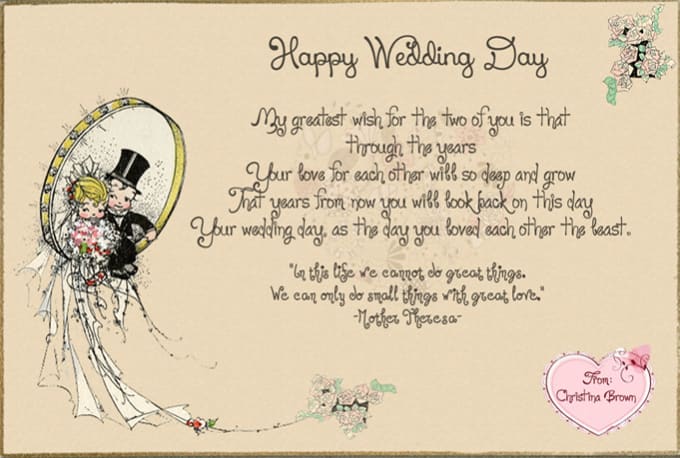 Happy Wedding Day
My greatest wish for the two of you is that
through the years
Your love for each other will so deep and grow
That years from now you will look back on this day
Your wedding day, as the day you loved each other the least.
"In this life we cannot do great things.
We can only do small things with great love."
-Mother Theresa-
From:
Christina Brown